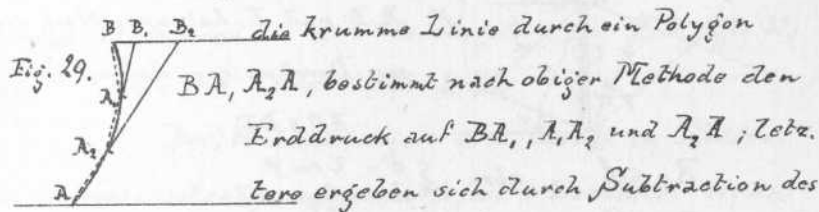 B B₁ B₂
die krumme Linie durch ein Polygon
Fig. 29.
BA, A₂A, bestimmt nach obiger Methode den
A₁
Erddruck auf BA₁, A₁A₂ und A₂A; letz.
A₂
tere ergeben sich durch Subtraction des
A